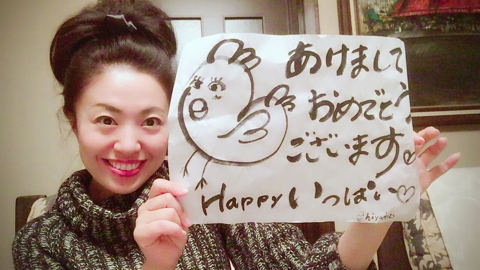 あけまして
おめでとう
ございます
Happyいっぱい♡